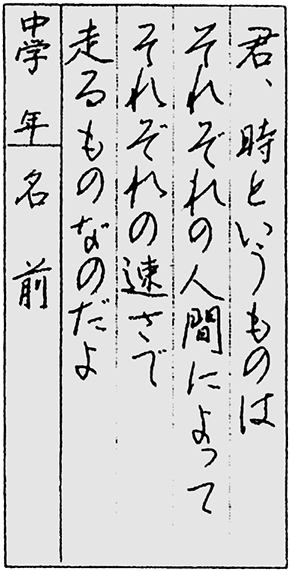 君、時というものは
それぞれの人間によって
それぞれの速さで
走るものなのだよ
中学 年 名前